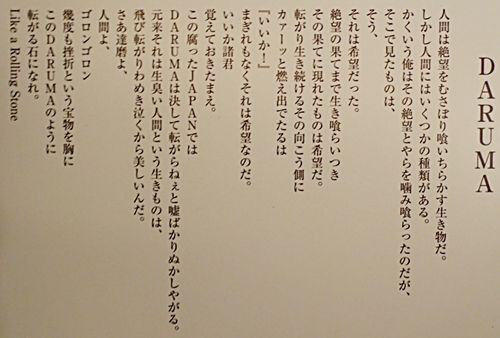 DARUMA
人間は絶望をむさぼり喰いちらかす生き物だ。
しかし人間にはいくつかの種類がある。
かくいう俺はその絶望とやらを噛み喰らったのだが、
そこで見たものは、
そう、
それは希望だった。
絶望の果てまで生き喰らいつき
その果てに現れたものは希望だ。
転がり生き続けるその向こう側に
カァーッと燃え出でたるは
『いいか！』
まぎれもなくそれは希望なのだ。
いいか諸君
覚えておきたまえ。
この腐ったＪＡＰＡＮでは
ＤＡＲＵＭＡは決して転がらねぇと嘘ばかりぬかしやがる。
元来それは生臭い人間という生きものは、
飛び転がりわめき泣くから美しいんだ。
さあ達磨よ、
人間よ、
ゴロンゴロン
幾度も挫折という宝物を胸に
このＤＡＲＵＭＡのように
転がる石になれ。
Like a Rolling Stone